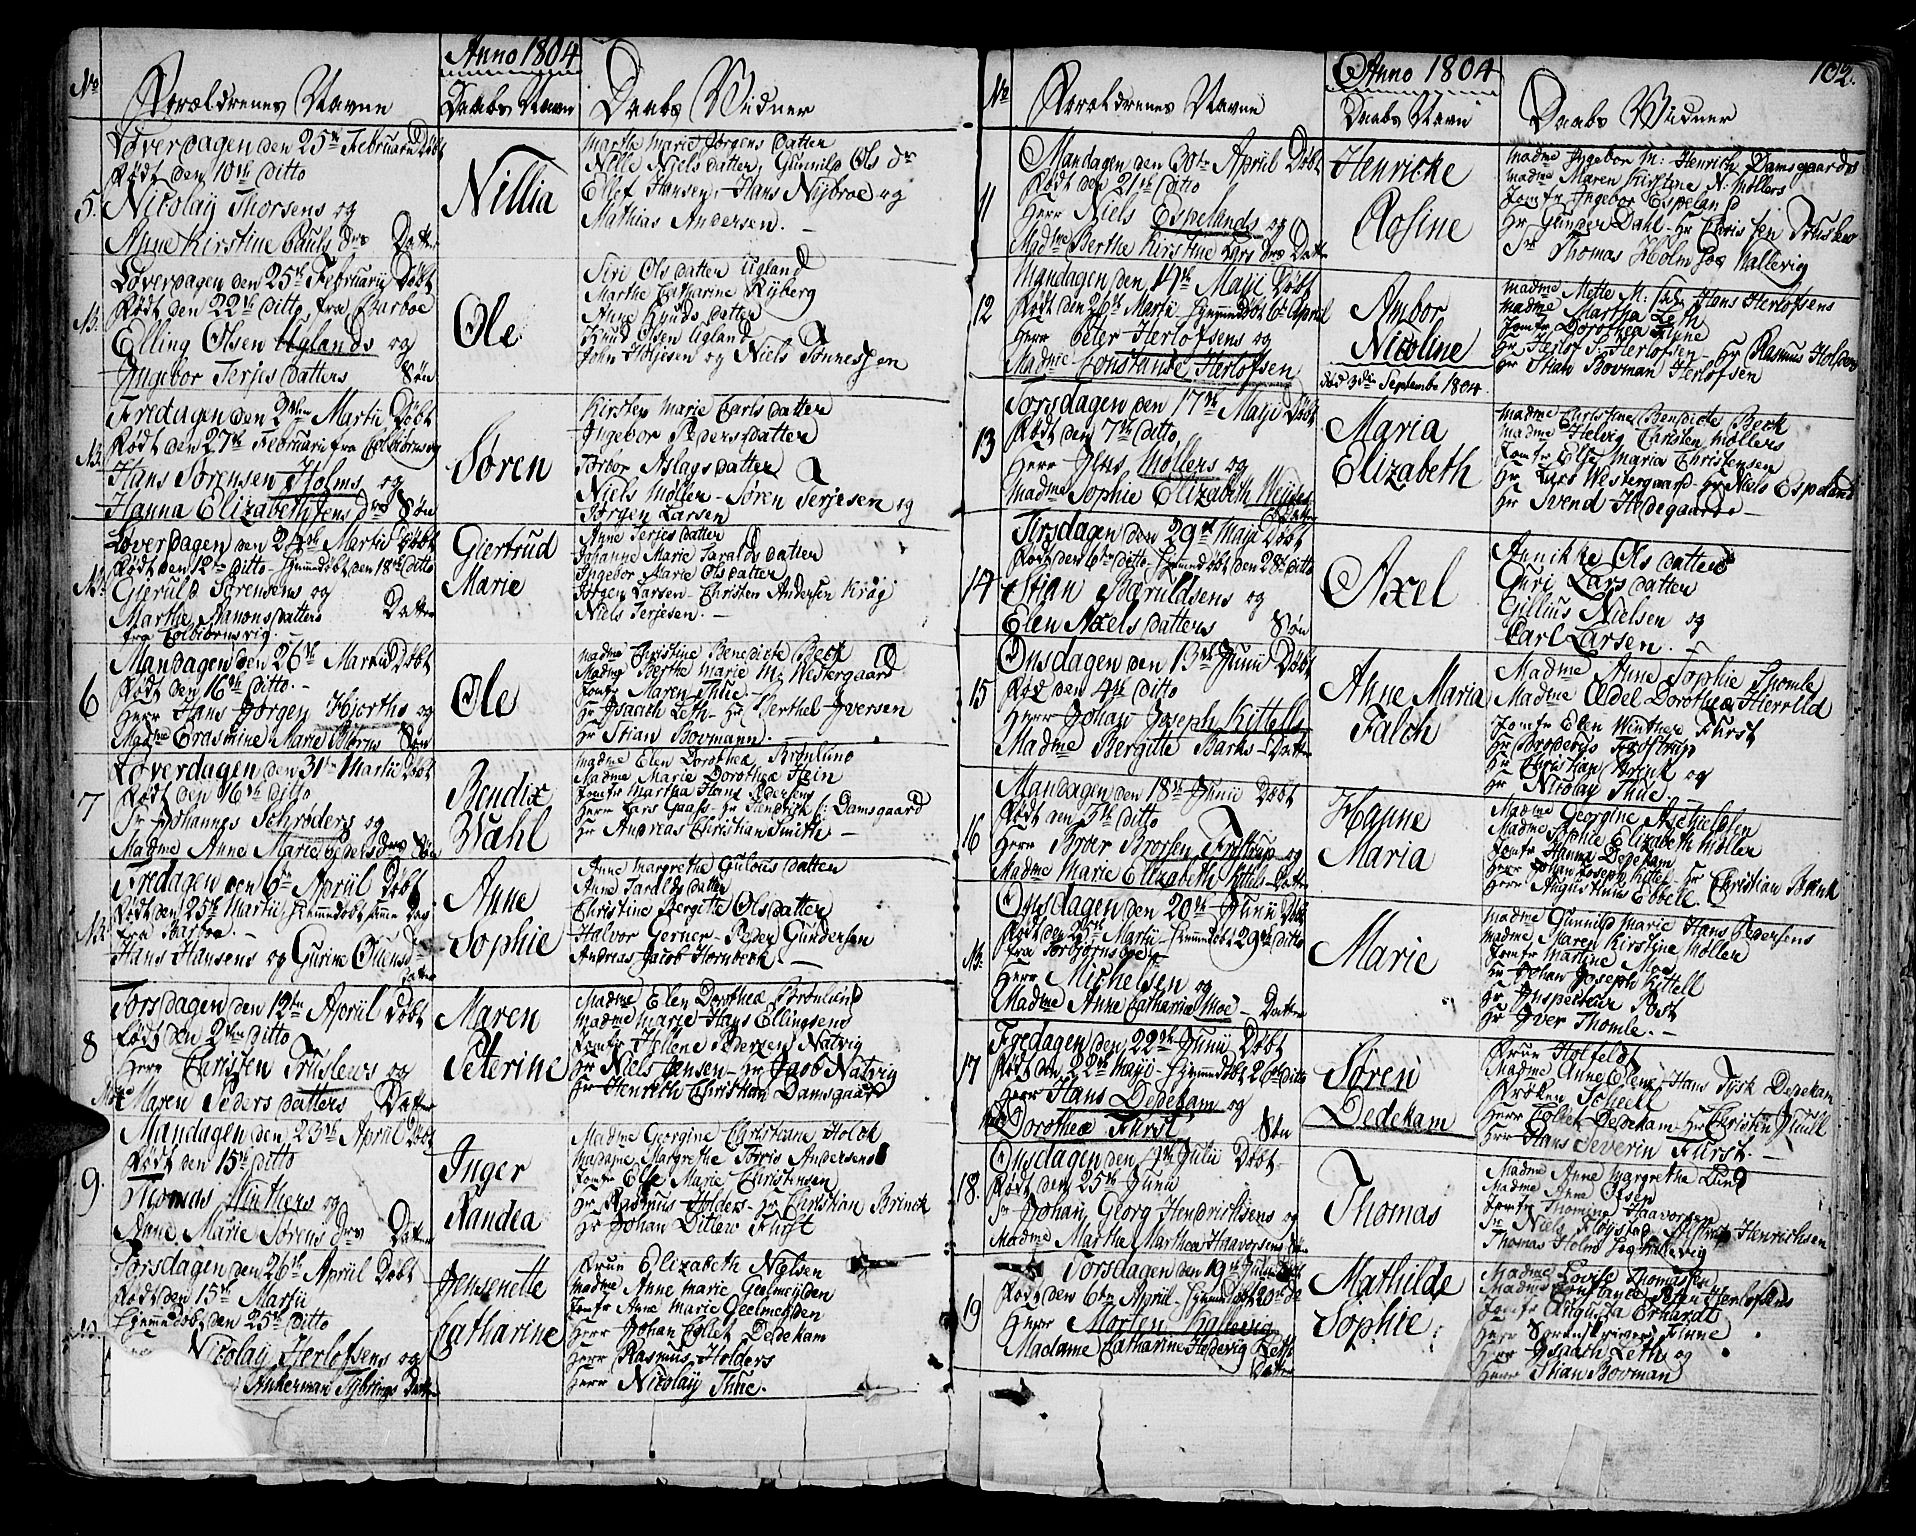 Anno 1804
No
Forældrenes Navne
Daabs Navn
Daabs Vidner
Løverdagen den 25de Februarii Døbt
Født den 10de Ditto
5.
Nicolaÿ Thorsens og
Anne Kirstine Pauls Drs Datter
Nillia
Marthe Marie Jørgens Datter
Nille Niels Datter, Gunnild Ols Dr
Ellef Hansen, Hans Nÿbroe og
Mathias Andersen.
Løverdagen den 25de Februarii Døbt
Født den 22de Ditto fra Barboe
NB.
Elling Olsen Uglands og
Ingebor Terjes Datters Søn
Ole
Siri Ols Datter Ugland
Marthe Catharine Rÿberg
Anne Knuds Datter
Knud Olsen Ugland
John Holjesen og Niels Tønnessen
Fredagen den 2den Martii Døbt
Født den 27de Februarii fra Colbiørnsvig
NB.
Hans Sørensen Holms og
Hanna Elizabeth Jens Drs Søn
Søren
Kirsten Marie Carls Datter
Ingebor Peders Datter
Torbor Aslags Datter
Niels Møller - Søren Terjesen og
Jørgen Larsen
Løverdagen den 24de Martii Døbt
Født den 12te Ditto - Hiemmedøbt den 18de Ditto
NB.
Gieruld Sørensens og
Marthe Aanons Datters Datter
fra Colbiørnsvig.
Giertrud
Marie
Anne Terjes Datter
Johanne Marie Taralds Datter
Ingebor Marie Ols Datter
Jørgen Larsen - Christen Andersen Krøg
Niels Terjesen.
Mandagen den 26de Martii Døbt
Født den 16de Ditto.
6
Herr Hans Jørgen Hjorths og
Madme Erasmine Marie Søn
Ole
Madme Christine Benedicte Beck
Madme Berthe Marie M. Westergaard
Jomfr Maren Thue
Hr Isaach Leth - Hr Berthel Iversen
Hr Stian Bovmann.
Løverdagen den 31te Martii Døbt
Født den 16de Ditto
7
Sr Johannes Schrøders og
Madme Anne Marie Peders Drs Søn
Bendix
Wahl
Madme Elen Dorothea Brønlund
Madme Marie Dorothea Hein
Jomfr Martha Hans Pedersens
Herr Lars Gaass - Hr Hendrich S: Damsgaard
Hr Andreas Christian Smith
Fredagen den 6te Apriil Døbt
Født den 25de Martii, Hiemmedøbt samme Dag
NB.
fra Barboe.
Hans Hansens og Gurine Olens Dr
Datter
Anne
Sophie
Anne Margrethe Gulovs Datter
Anne Taralds Datter
Christine Bergitte Ols Datter
Halvor Gerner - Peder Gundersen
Andreas Jacob Hornbeck
Torsdagen den 12te Apriil Døbt
Født den 2den Ditto
8
Herr Christen Truslews og
Mdme Maren Peders Datters Datter
Maren
Peterine
Madme Elen Dorothea Brønlund
Madme Marie Hans Ellingsens
Jomfr Hellene Pedersen Natvig
Hr Niels Jensen - Hr Jacob Natvig
Hr Henrich Christian Damsgaard
Mandagen den 23de Apriil Døbt
Født den 15de Ditto
9.
Thomas Winthers og
Anne Marie Sørens Drs Datter
Inger
Nandea
Madme Georgine Christiane Holck
Madame Margrethe Torris Andersens
Jomfr Else Marie Christensen
Hr Rasmus Holders - Hr Christian Brinck
Hr Johan Ditlew Fürst
Torsdagen den 26de Apriil Døbt
Født den 15de Martii
Hiemmedøbt den 25de Ditto
NB.
Nicolaÿ Herlofsens og
Ankerman Sÿbrings Datter
Jensenette
Catharine
Frue Elizabeth Nielsen
Madme Anne Marie Geelmeÿden
Jomfr Anne Marie Geelmeÿden
Herr Johan Collet Dedekam
Herr Rasmus Holders
Herr Nicolaÿ Thue.
Anno 1804
102.
No
Forældrenes Navne
Daabs Navn
Daabs Vidner
Mandagen den 30te Apriil Døbt
Født den 21de Ditto
11
Herr Niels Espelands og
Madme Berthe Kirstine Lars Drs Datter
Henricke
Rosine
Madme Ingebor M: Henrich Damsgaards
Madme Maren Kirstine N. Møllers
Jomfr Ingebor Espeland
Hr Gunder Dahl - Hr Christen Truslew
Sr Thomas Holm paa Hallevig
Mandagen den 14de Maji Døbt
Født den 26de Martii Hiemmedøbt 6te April
12
Herr Peter Herlofsens og
Madme Constance Herlofsen
Ambor
Nicoline
død 3die Septembr 1804
Madme Mette M: Sal. Hans Herlofsens
Madme Martha Leth
Jomfr Dorothea Thue
Hr Herlof S: Herlofsen - Hr Rasmus Holders
Hr Stian Bovman Herlofsen
Torsdagen den 17de Maji Døbt
Født den 7de Ditto
13
Herr Jens Møllers og
Madme Sophie Elizabeth
Datter
Maria
Elizabeth
Madme Christine Benedicte Beck
Madme Helvig Christen Møllers
Jomfr Else Maria Christensen
Hr Lars Westergaard - Hr Niels Espeland
Hr Svend Hedegaard
Tirsdagen den 29de Maji Døbt
Født den 6te Ditto - Hiemmedøbt den 28de Ditto
14
Stian Bæruldsens og
Elen Axels Datters Søn
Axel
Annikke Ols Datter
Guri Lars Datter
Gulius Nielsen og
Carl Larsen.
Onsdagen den 13de Junii Døbt
Fød den 4de Ditto
15
Herr Johan Joseph Kittells
Madme Bergitte Barks Datter
Anne Maria
Falch
Madme Anne Sophie Thomle
Madme Ædel Dorothea Herrold
Jomfr Elen Winther Fürst
Hr Broderus Frostrup
Hr Christian Brink og
Hr Nicolaÿ Thue.
Mandagen den 18de Junii Døbt
Født den 3de Ditto
16
Herr Broer Brorsen Frostrup og
Madme Marie Elizabeth Kittels Datter
Hanne
Maria
Madme Georgine Aschielsen
Madme Sophie Elizabeth Møller
Jomfr Hanna Dedekam
Herr Johan Joseph Kittel - Hr Christian Brink
Herr Augustinus Ebbell.
Onsdagen den 20de Junii Døbt
Født den 25de Martii - Hiemmedøbt 29de Ditto
NB.
fra Torbjørnsboe
Herr Michelsen og
Madme Anne Catharina Moe - Datter
Marie
Madme Gunnild Marie Hans Pedersens
Madme Maren Kirstine Møller
Jomfr Martine Moe
Hr Johan Joseph Kittell
Hr Inspecteur Post
Hr Iver Thomle.
Fredagen den 22de Junii Døbt
Født den 22de Maji - Hiemmedøbt 26de Ditto
17
Herr Hans Dedekam og
Mdme Dorothea Fürst Søn
Søren
Dedekam
Frue Holfeldt
Madme Anne Elene Hans Tÿsk Dedekam
Frøken Scheell
Herr Collet Dedekam Hr Christen Juell
Herr Hans Severin Fürst.
Onsdagen den 4de Julii Døbt
Født den 25de Junii
18.
Sr Johan Georg Hendrichsens og
Madme Marthe Marthea Haavorsens Søn
Thomas
Madme Anne Margrethe Lund
Madme Anne Olsen
Jomfr Thomine Haavorsen
Sr Niels Fløÿstad, Henrichsen
Thomas Holm paa Hallevig
Torsdagen den 19de Julii Døbt
Født den 6te April - Hiemmedøbt 20de De
19
Herr Morten Kallevig
Madame Catharine Hedevig Leth
Datter
Mathilde
Sophie.
Madme Lovise Thomassen
Madme Constance Peter Herlofsens
Jomfr Augusta Erhardt
Herr Sorenskriver Thue
Herr Isaach Leth og
Herr Stian Bovman